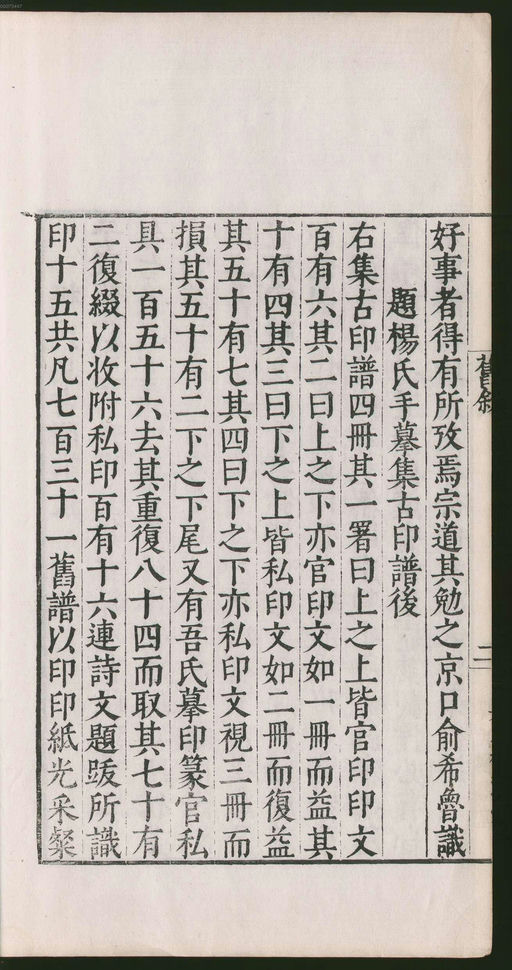 好事者得有所攷焉宗道其勉之京口俞希魯識
題楊氏手摹集古印譜後
右集古印譜四冊其一署曰上之上皆官印印文
百有六其二曰上之下亦官印文如一冊而益其
十有四其三曰下之上皆私印文如二冊而復益
其五十有七其四曰下之下亦私印文視三冊而
損其五十有二下之下尾又有吾氏摹印篆官私
具一百五十六去其重復八十四而取其七十有
二復綴以收附私印百有十六連詩文題䟦所識
印十五共凡七百三十一舊譜以印印紙光采粲
舊敘
二